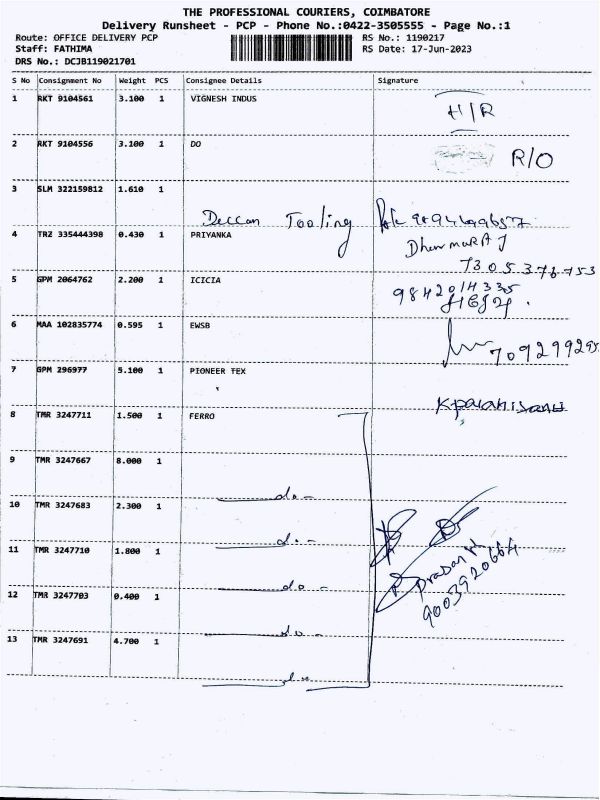 THE PROFESSIONAL COURIERS, COIMBATORE
Delivery Runsheet - PCP - Phone No.:0422-3505555 - Page No.:1
Route: OFFICE DELIVERY PCP RS No.: 1190217
Staff: FATHIMA RS Date: 17-Jun-2023
DRS No.: DCJB119021701
S No Consignment No Weight PCS Consignee Details Signature
1 RKT 9104561 3.100 1 VIGNESH INDUS
H/R
2 RKT 9104556 3.100 1 DO
R/O
3 SLM 322159812 1.610 1
Deccan Tooling
4 TRZ 335444398 0.430 1 PRIYANKA
7305376753
5 GPM 2064762 2.200 1 ICICIA
9842014335
6 MAA 102835774 0.595 1 EWSB
709299295
7 GPM 296977 5.100 1 PIONEER TEX
8 TMR 3247711 1.500 1 FERRO
9 TMR 3247667 8.000 1
do -
10 TMR 3247683 2.300 1
do -
11 TMR 3247710 1.800 1
do -
12 TMR 3247703 0.400 1
do -
13 TMR 3247691 4.700 1
do -